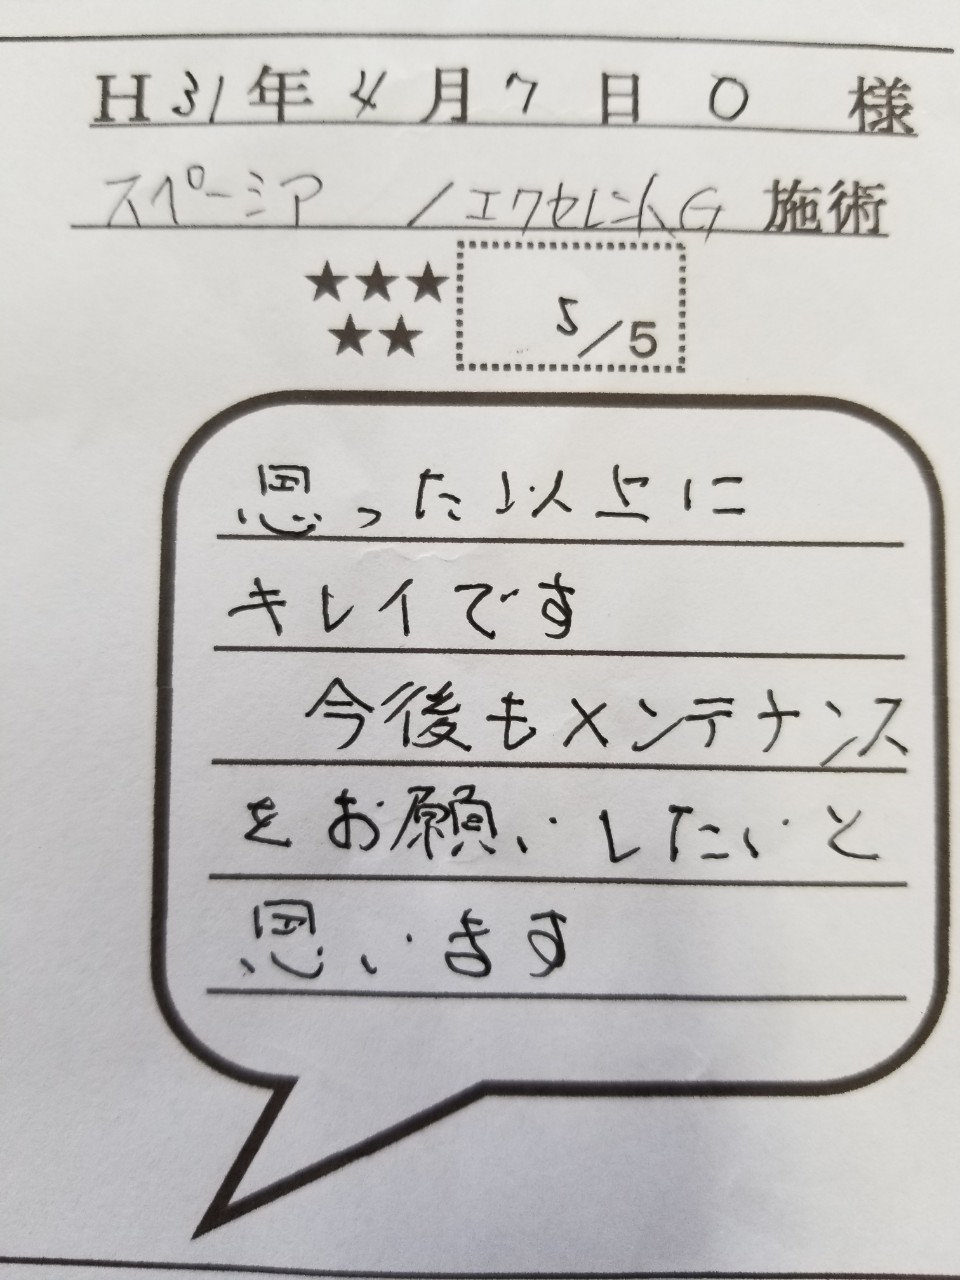 H31年4月7日 O 様
スペーシア /エクセレントG 施術
★★★
★★
5/5
思った以上に
キレイです
今後もメンテナンス
をお願いしたいと
思います